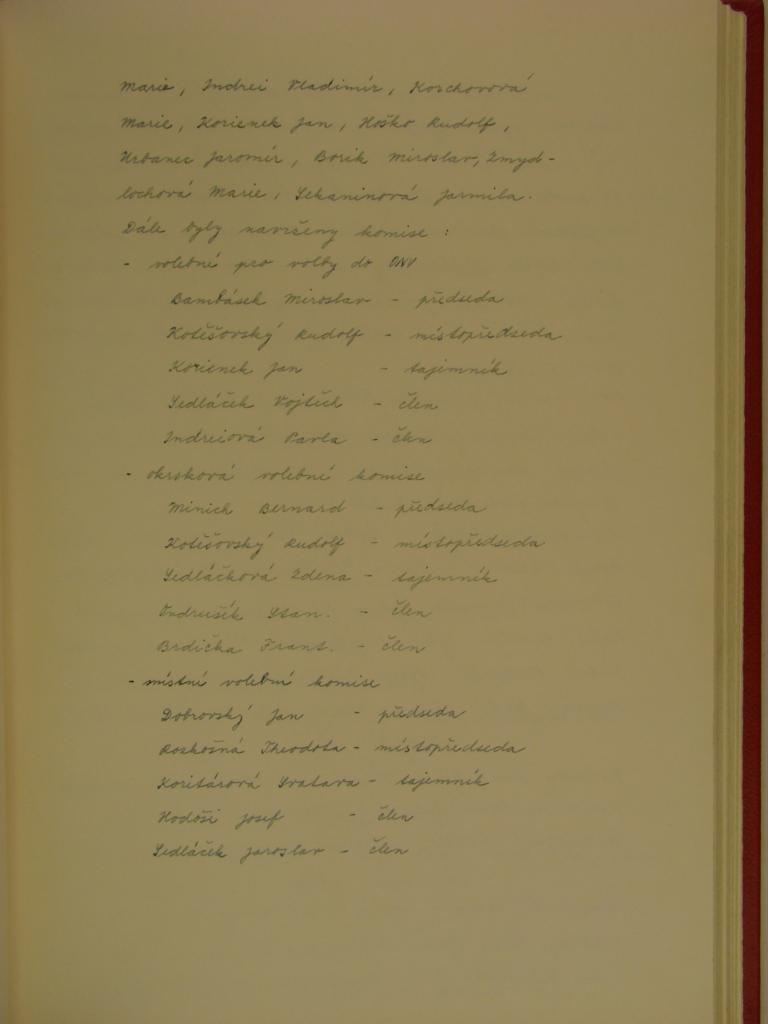 Marie, Indrei Vladimír, Korchovová
Marie, Korienek Jan, Hoško Rudolf,
Urbanec Jaromír, Borik Miroslav, Zmyd-
lochová Marie, Sekaninová Jarmila.
Dále byly navrženy komise :
- volební pro volby do ONV
Bambásek Miroslav - předseda
Kotěšovský Rudolf - místopředseda
Korienek Jan - tajemník
Sedláček Vojtěch - člen
Indreiová Pavla - člen
- okrsková volební komise
Minich Bernard - předseda
Kotěšovský Rudolf - místopředseda
Sedláčková Zdena - tajemník
Ondrušík Stan. - člen
Brdička Frant. - člen
- místní volební komise
Dobrovský Jan - předseda
Rozkošná Theodota - místopředseda
Koritárová Svatava - tajemník
Hodoši Josef - člen
Sedláček Jaroslav - člen